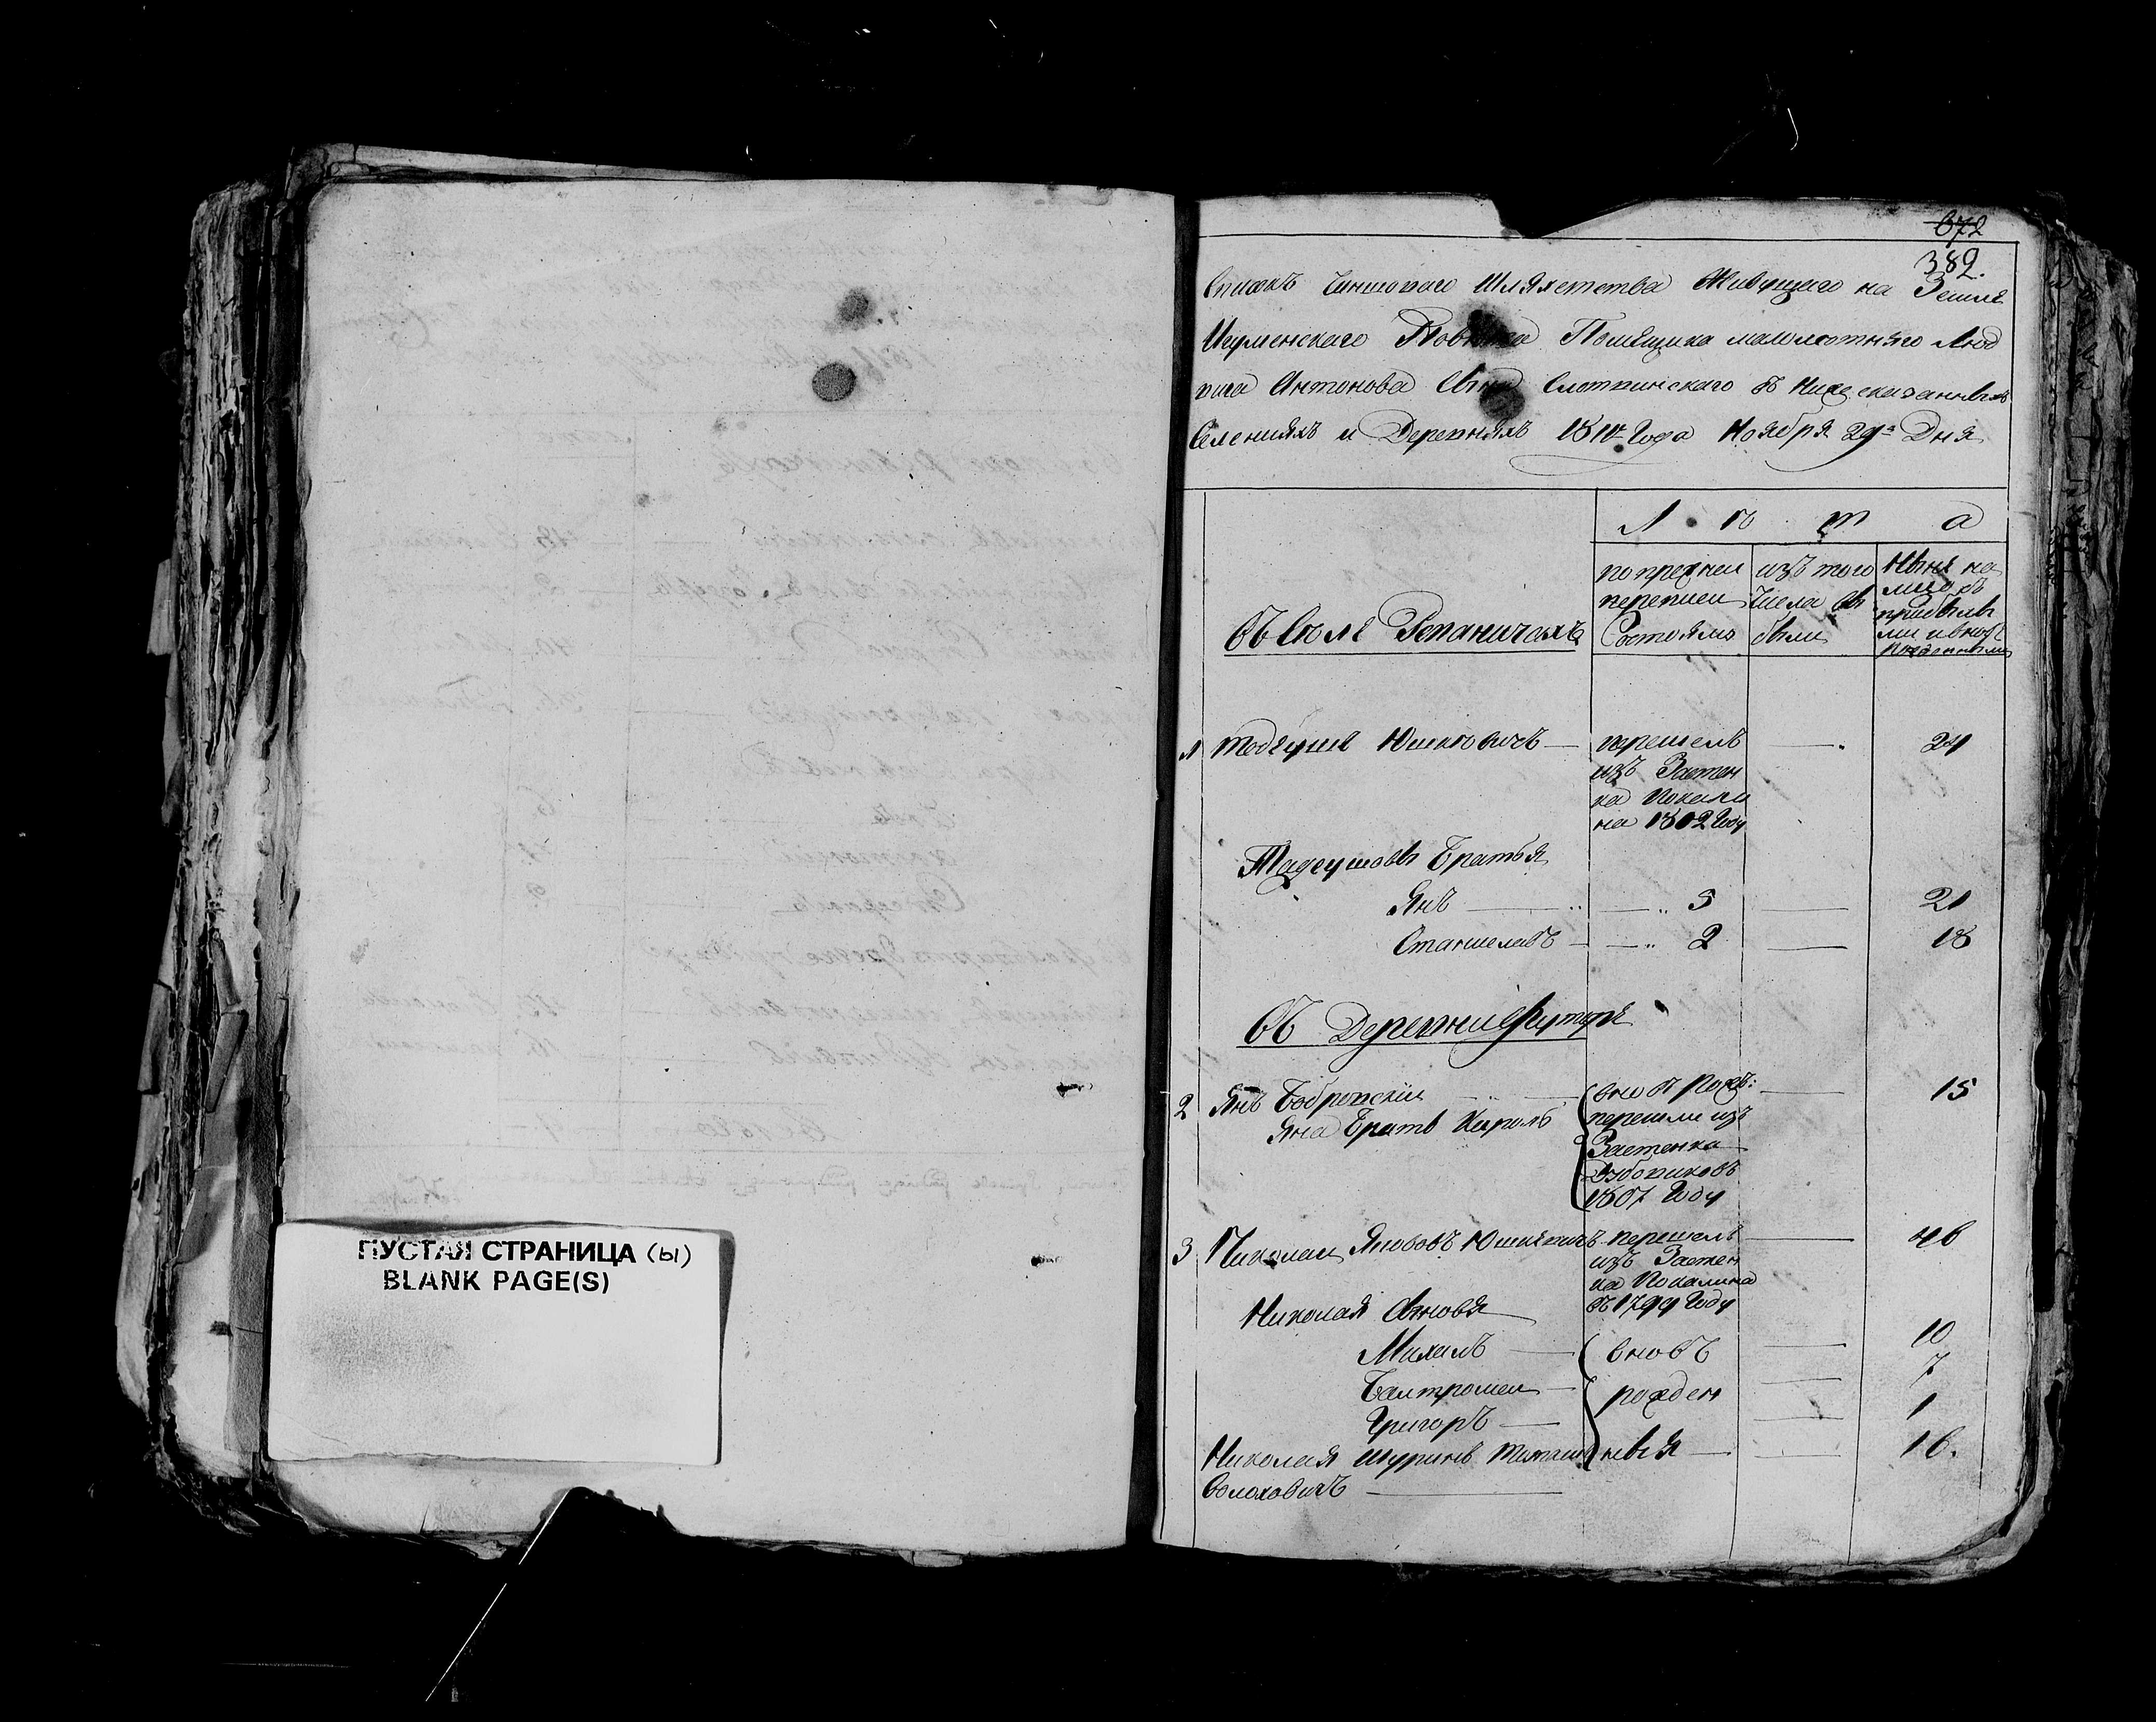 ПУСТАЯ СТРАНИЦА (ы)
BLANK PAGE(S)
672
382.
Списокъ Чиншоваго Шляхетства Живущаго на Земле
Игуменскаго Повѣта Помѣщика малолѣтняго Люд
вига Антонова Сына Слотвинскаго въ нижесказанныхъ
Селенияхъ и Деревняхъ 1811 Года Ноября 29а Дня
Л ѣ т а
по прежней переписи Состояло
изъ того числа выбыли
Нынѣ на лицо съ прибылыми и вновь рожденными
Въ Селѣ Репаничахъ
1 Тадеушъ Юшкевичъ — перешелъ — 24
изъ Застен
ка Покали
на 1802 Году
Тадеушовы Братья
Янъ — 5 — 21
Станиславъ — 2 — 18
Въ Деревни Футоре
2 Янъ Бобровский — вновь Рожд: — 15
Яна Братъ Кароль перешли изъ
Застенка
1807 Году
3 Николай Яновъ Юшкевичъ перешелъ — 46
изъ Застен
ка Покалина
въ 1799 Году
Николая Сыновья
Михаилъ — вновь — 10
Балтромей — рожден — 7
Григоръ — 1
Николая Шуринъ ные — 16.
Волоховичъ —